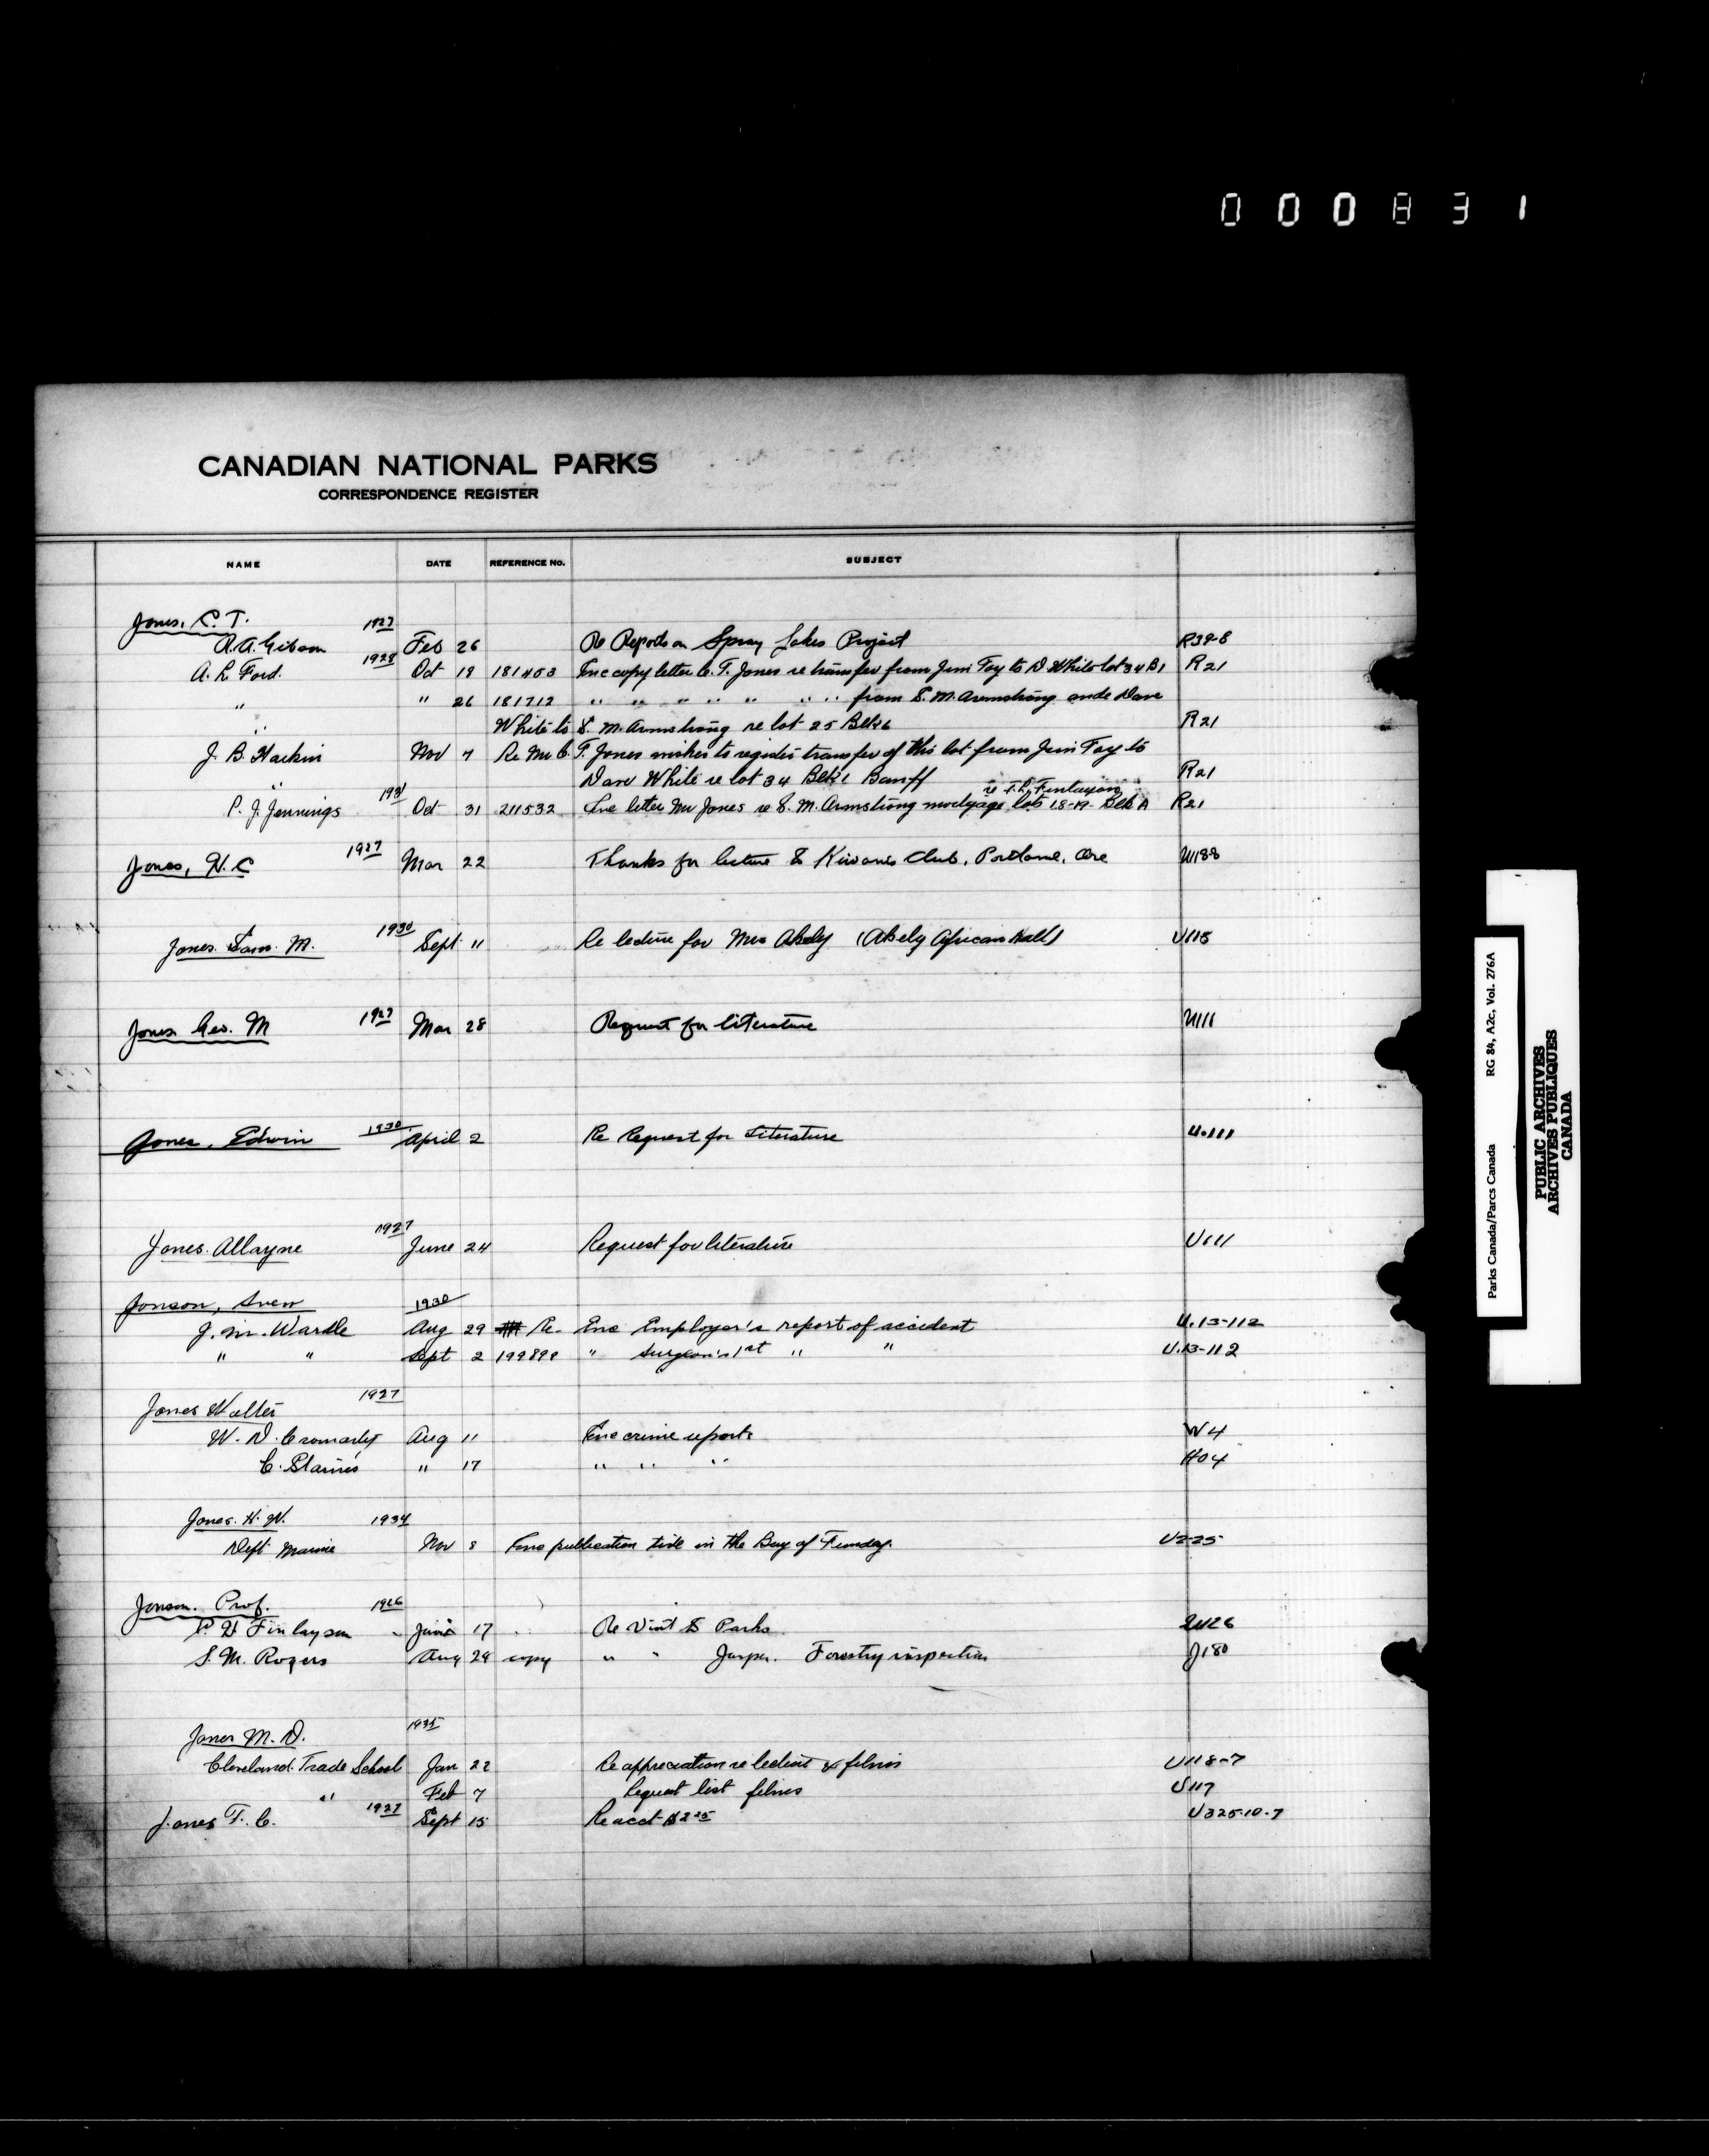 000831
CANADIAN NATIONAL PARKS
CORRESPONDENCE REGISTER
NAME DATE REFERENCE No. SUBJECT
Jones, C. T. 1927
R. A. Gibson Feb 26 Re Reports on Spray Lakes Project R39-8
A. L. Ford. 1928 Oct 18 181453 Enc copy letter C. T. Jones re transfer from Jim Fay to D White lot 34 B1 R21
" " 26 181712 " " " " " " " from S. M. Armstrong and Dave
" White to S. M. Armstrong re lot 25 Blk 6 R21
J. B. Harkin Nov 7 Re Mr C. T. Jones wishes to register transfer of this lot from Jim Fay to
Dave White re lot 34 Blk 1 Banff R21
re T. L. Finlayson
P. J. Jennings 1931 Oct 31 211532 Enc letter Mr Jones re S. M. Armstrong mortgage lots 18-19 Blk A R21
Jones, H. C 1927 Mar 22 Thanks for lecture to Kiwanis Club, Portland, Ore U188
Jones. Sam. M. 1930 Sept 11 Re lecture for Mrs Akely (Akely African Hall) U115
Jones Geo. M 1927 Mar 28 Request for literature U111
Jones, Edwin 1930 April 2 Re Request for Literature U.111
Jones. Allayne 1927 June 24 Request for literature U111
Jonson, Sven 1930
J. M. Wardle Aug 29 Re- Enc Employer's report of accident U.13-112
" " Sept 2 199899 " Surgeon's 1st " " U.13-112
Jones Walter 1927
W. D. Cromarty Aug 11 Enc crime reports W4
C. Starnes " 17 " " " H04
Jones. H. W. 1934
Dept Marine Nov 8 Enc publication tide in the Bay of Fundy. U225
Jonson. Prof. 1926
Finlayson June 17 Re Visit to Parks U26
S. M. Rogers Aug 24 copy " " Jasper. Forestry inspection J180
Jones M. D. 1935
Cleveland Trade School Jan 22 Re appreciation re lecture & films U118-7
" Feb 7 Request list films U117
Jones F. C. 1927 Sept 15 Re acct $2 25 U325-10-7
Parks Canada/Parcs Canada RG 84, A2c, Vol. 276A
PUBLIC ARCHIVES
ARCHIVES PUBLIQUES
CANADA